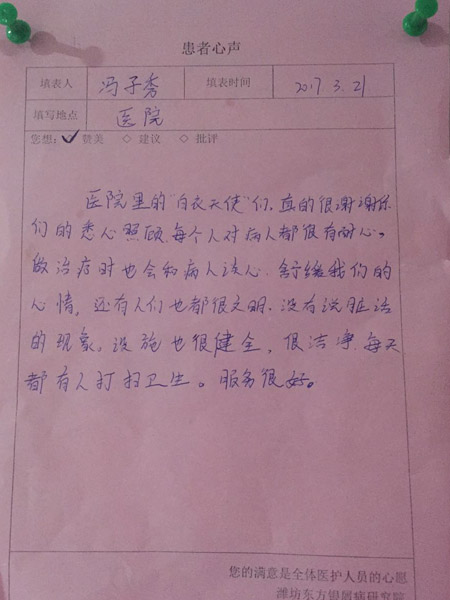 患者心声
填表人 冯子秀 填表时间 2017.3.21
填写地点 医院
您想: ✓ 赞美 ◇ 建议 ◇ 批评
医院里的“白衣天使”们,真的很谢谢你
们的悉心照顾,每个人对病人都很有耐心。
做治疗时也会和病人谈心,舒缓我们的
心情,还有人们也都很文明.没有说脏话
的现象。设施也很健全,很洁净,每天
都有人打扫卫生。服务很好。
您的满意是全体医护人员的心愿
潍坊东方银屑病研究院